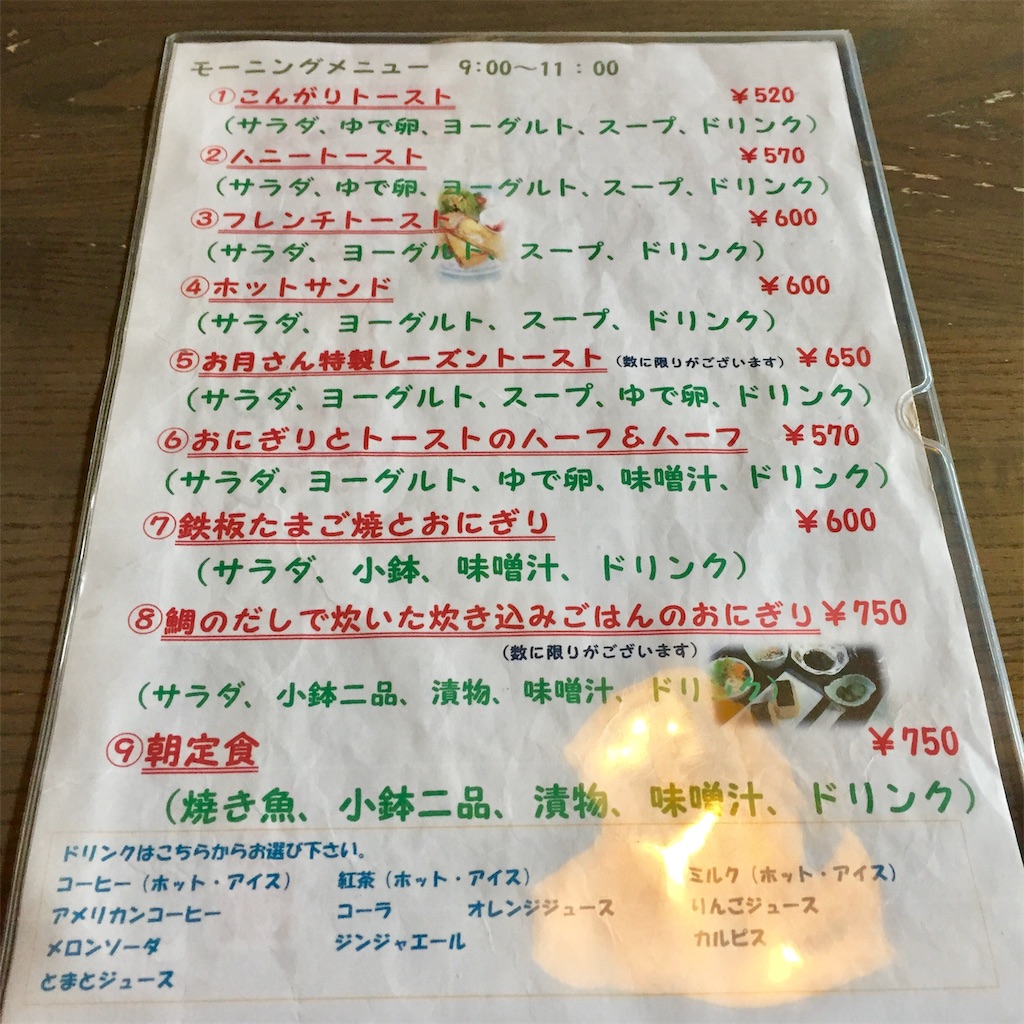 モーニングメニュー 9:00～11：00
①こんがりトースト ￥520
（サラダ、ゆで卵、ヨーグルト、スープ、ドリンク）
②ハニートースト ￥570
（サラダ、ゆで卵、ヨーグルト、スープ、ドリンク）
③フレンチトースト ￥600
（サラダ、ヨーグルト、スープ、ドリンク）
④ホットサンド ￥600
（サラダ、ヨーグルト、スープ、ドリンク）
⑤お月さん特製レーズントースト（数に限りがございます）￥650
（サラダ、ヨーグルト、スープ、ゆで卵、ドリンク）
⑥おにぎりとトーストのハーフ＆ハーフ ￥570
（サラダ、ヨーグルト、ゆで卵、味噌汁、ドリンク）
⑦鉄板たまご焼とおにぎり ￥600
（サラダ、小鉢、味噌汁、ドリンク）
⑧鯛のだしで炊いた炊き込みごはんのおにぎり￥750
（数に限りがございます）
（サラダ、小鉢二品、漬物、味噌汁、ドリンク）
⑨朝定食 ￥750
（焼き魚、小鉢二品、漬物、味噌汁、ドリンク）
ドリンクはこちらからお選び下さい。
コーヒー（ホット・アイス） 紅茶（ホット・アイス） ミルク（ホット・アイス）
アメリカンコーヒー コーラ オレンジジュース りんごジュース
メロンソーダ ジンジャエール カルピス
とまとジュース